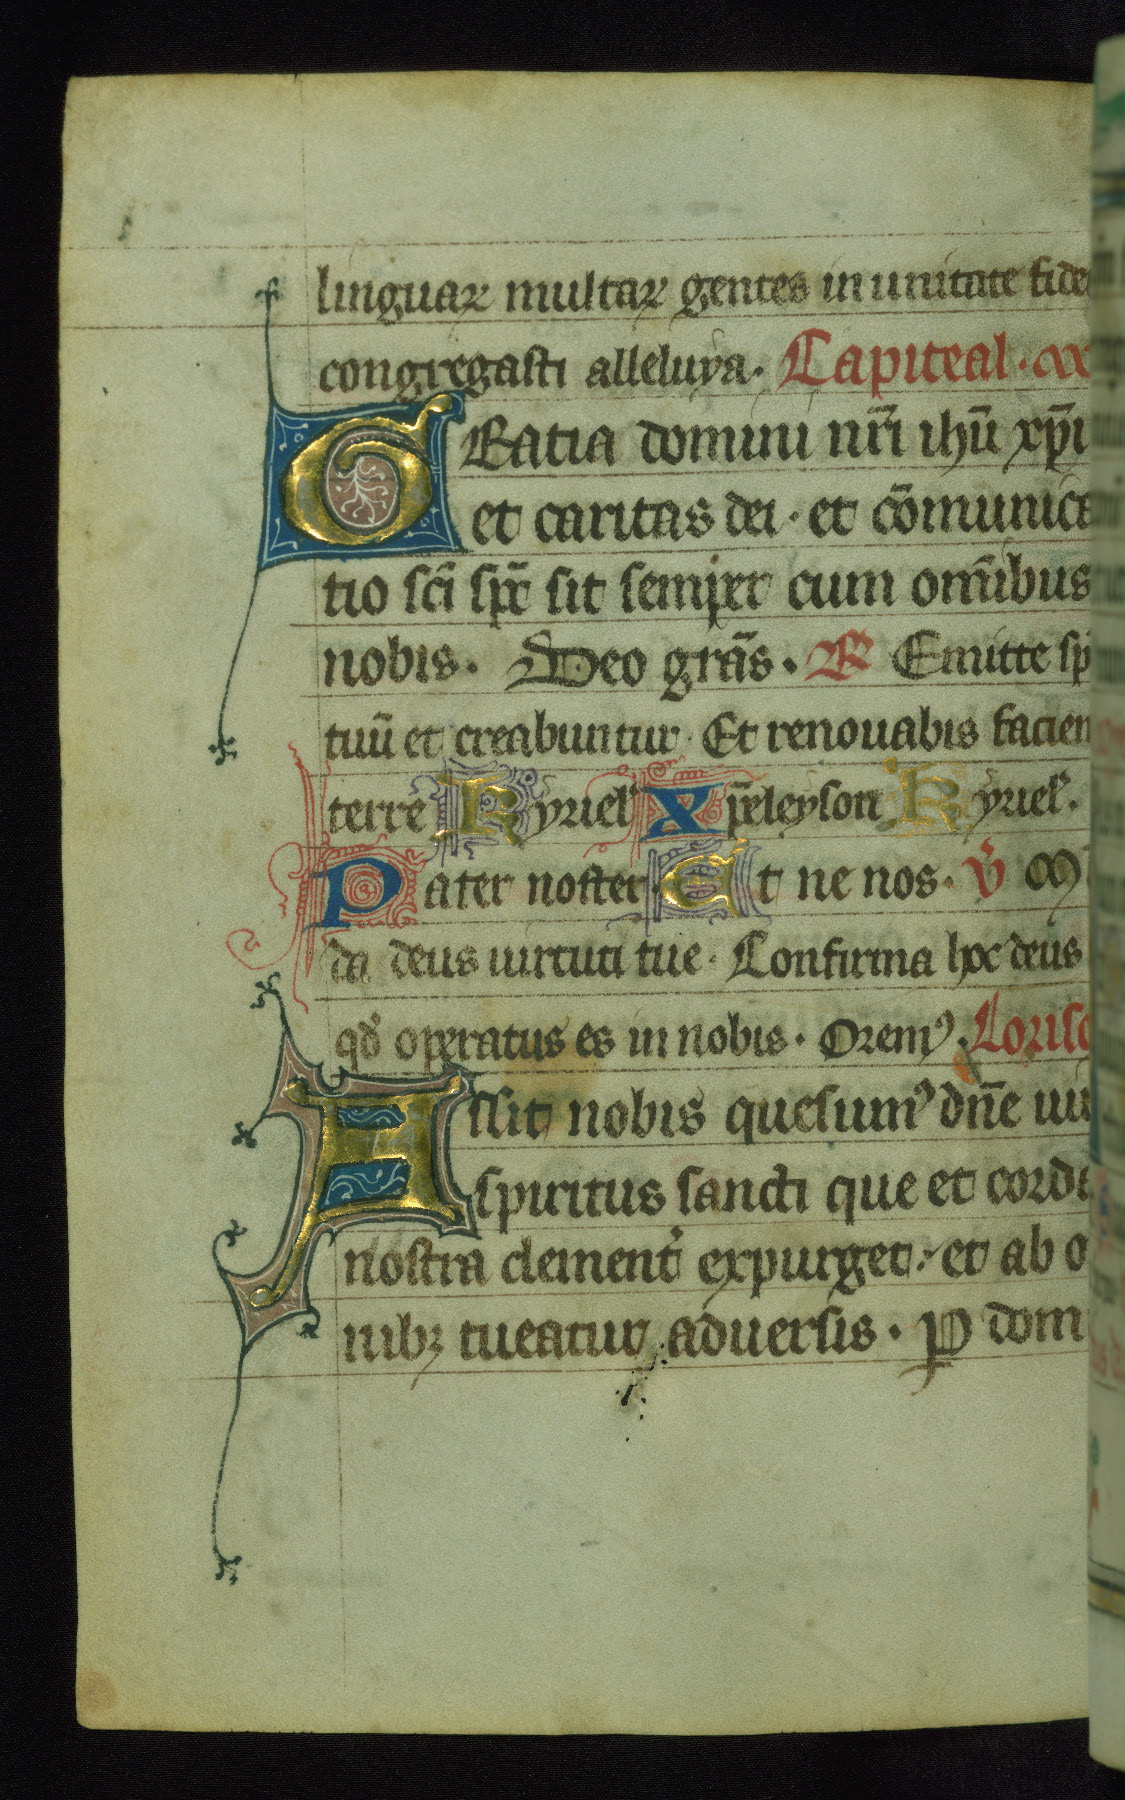 linguaꝝ multaꝝ gentes in unitate fide
congregasti alleluya. Capiteal.
GRatia domini nr̄i ihū xp̄i
et caritas dei · et cōmunica
tio sc̄i sp̄c sit semper cum omībus
nobis. Deo grās. R Emitte sp
tuū et creabuntur. Et renouabis facien
terre Kyriel' Xp̄eleyson Kyriel'.
Pater noster. Et ne nos. V̄
da deus uirtuti tue. Confirma hoc deus
qd̄ operatus es in nobis. Oremꝰ. Loriso
Assit nobis quesumꝰ dn̄e uir
spiritus sancti que et corda
nostra clement' expurget. et ab o
nibꝫ tueatur aduersis. P dom